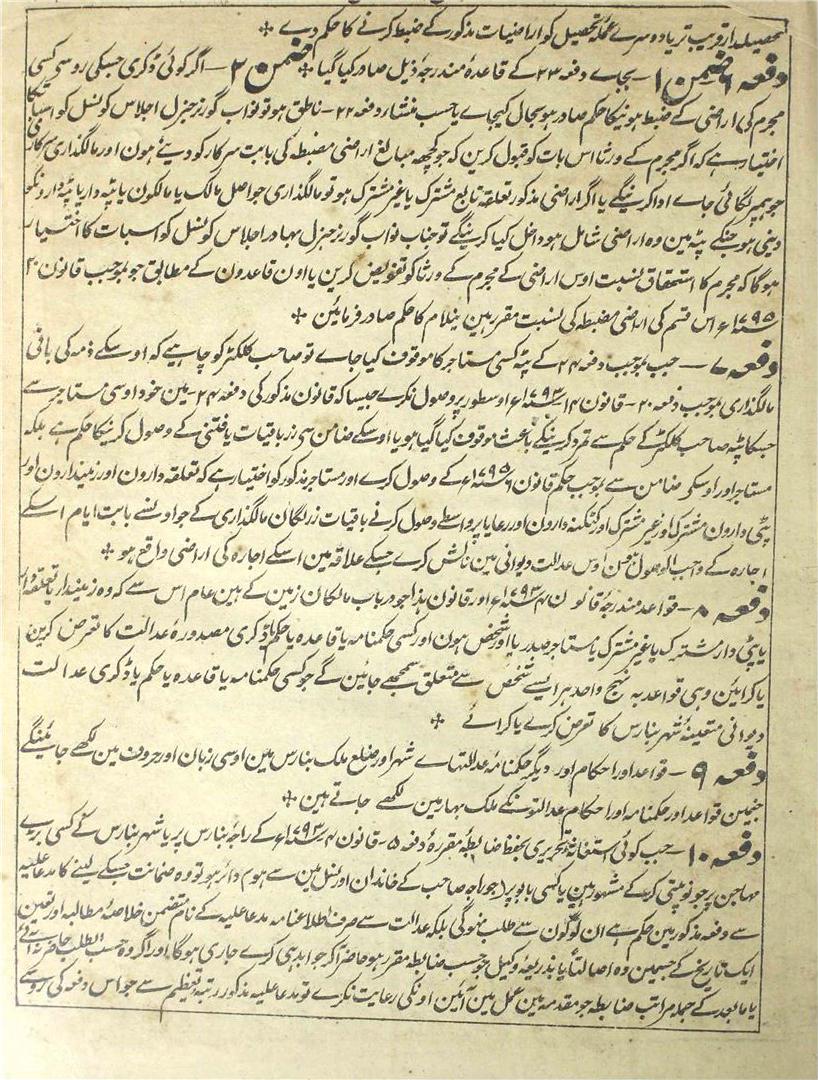 تحصیلدار قریب تر یا دوسرے عملۂ تحصیل کو اراضیات مذکور کے ضبط کرنے کا حکم دے ✤
دفعہ ۶ ضمن ۱ — بجاے دفعہ ۲۳ کے قاعدہ مندرجۂ ذیل صادر کیا گیا ✤ ضمن ۲ — اگر کوئی ڈگری جسکی روسی کسی
مجرم کی اراضی کے ضبط ہونیکا حکم صادر ہو بحال کیجاے یا حسب منشاء دفعہ ۲۲ - ناطق ہو تو نواب گورنر جنرل اجلاس کونسل کو اسبات کا
اختیار ہے کہ اگر مجرم کے ورثا اس بات کو قبول کرین کہ جو کچھہ مبالغ اراضی مضبطہ کی بابت سرکار کو دینے ہون اور مالگذاری سرکار کی
جو اوسپر لگائی جاے ادا کرینگے یا اگر اراضی مذکور تعلقہ تابع مشترک یا غیر مشترک ہو تو مالگذاری جو اصل مالک یا مالکون یا پٹہ دار یا پٹہ دارونکو
دینی ہو جنکے پٹہ مین وہ اراضی شامل ہو داخل کیا کرینگے تو جناب نواب گورنر جنرل بہادر اجلاس کونسل کو اسبات کا اختیار
ہوگا کہ مجرم کا استحقاق نسبت اوس اراضی کے مجرم کے ورثا کو تفویض کرین یا اون قاعدون کے مطابق جو بموجب قانون ۲۰
۱۷۹۵ء اس قسم کی اراضی مضبطہ کی نسبت مقرر ہین نیلام کا حکم صادر فرمائین ✤
دفعہ ۷ — جب بموجب دفعہ ۲۴ کے پٹہ کسی مستاجر کا موقوف کیا جاے تو صاحب کلکٹر کو چاہیے کہ اوسکے ذمہ کی باقی
مالگذاری بموجب دفعہ ۲۰ - قانون ۱۴ ۱۷۹۳ء اوسطور پر وصول نکرے جیسا کہ قانون مذکور کی دفعہ ۲۴ - مین خود اوسی مستاجر سے
جسکا پٹہ صاحب کلکٹر کے حکم سے تمرد کرنیکے باعث موقوف کیا گیا ہو یا اوسکے ضامن سی زر باقیات یافتنی کے وصول کرنیکا حکم ہے بلکہ
مستاجر اور اوسکی ضامن سے بموجب حکم قانون ۶ ۱۷۹۵ء کے وصول کرے اور مستاجر مذکور کو اختیار ہے کہ تعلقہ دارون اور زمیندارون اور
پٹی دارون مشترک اور غیر مشترک اور کٹکنہ دارون اور رعایا پر واسطے وصول کرنے باقیات زر لگان مالگذاری کے جو اونسے بابت ایام اسکے
اجارہ کے واجب الوصول ہون اوس عدالت دیوانی مین نالش کرے جسکے علاقہ مین اسکے اجارہ کی اراضی واقع ہو ✤
دفعہ ۸ — قواعد مندرجۂ قانون ۴ ۱۷۹۳ء اور قانون ہذا جو درباب مالکان زمین کے ہین عام اس سے کہ وہ زمیندار یا تعلقہ دار
یا پٹی دار مشترک یا غیر مشترک یا مستاجر صدر یا اور شخص ہون اور کسی حکمنامہ یا قاعدہ یا حکم یا ڈگری مصدورۂ عدالت کا تعرض کرین
یا کرائین وہی قواعد بہ نہج واحد ہر ایسے شخص سے متعلق سمجھے جائین گے جو کسی حکمنامہ یا قاعدہ یا حکم یا ڈگری عدالت
دیوانی متعینۂ شہر بنارس کا تعرض کرے یا کرائے ✤
دفعہ ۹ — قواعد اور احکام اور دیگر حکمنامۂ عدالتہاے شہر اور ضلع ملک بنارس مین اوسی زبان اور حروف مین لکھے جائینگے
جنمین قواعد اور حکمنامہ اور احکام عدالتونکے ملک بہار مین لکھے جاتے ہین ✤
دفعہ ۱۰ — جب کوئی استغاثۂ تحریری بحفظ ضابطۂ مقررۂ دفعہ ۵ - قانون ۴ ۱۷۹۳ء کے راجۂ بنارس پر یا شہر بنارس کے کسی بڑے
مہاجن پر جو نوپتی کرکے مشہور ہین یا کسی بابو پر (جو راجہ صاحب کے خاندان اور نسل مین سے ہو) دائر ہو تو وہ ضمانت جسکے لینے کا مدعا علیہ
سے دفعہ مذکور مین حکم ہے ان لوگون سے طلب نہوگی بلکہ عدالت سے صرف اطلاعنامہ مدعا علیہ کے نام متضمن خلاصۂ مطالبہ اور تعین
ایک تاریخ کے جسمین وہ اصالتاً یا بذریعہ وکیل جو حسب ضابطہ مقرر ہو حاضر آکر جوابدہی کرے جاری ہوگا اور اگر وہ حسب الطلب حاضر نہ آئے
یا مابعد کے جملہ مراتب ضابطہ جو مقدمہ مین عمل مین آئین اونکی رعایت نکرے تو مدعا علیہ مذکور رتبہ و تعظیم سے جو اس دفعہ کی روسے